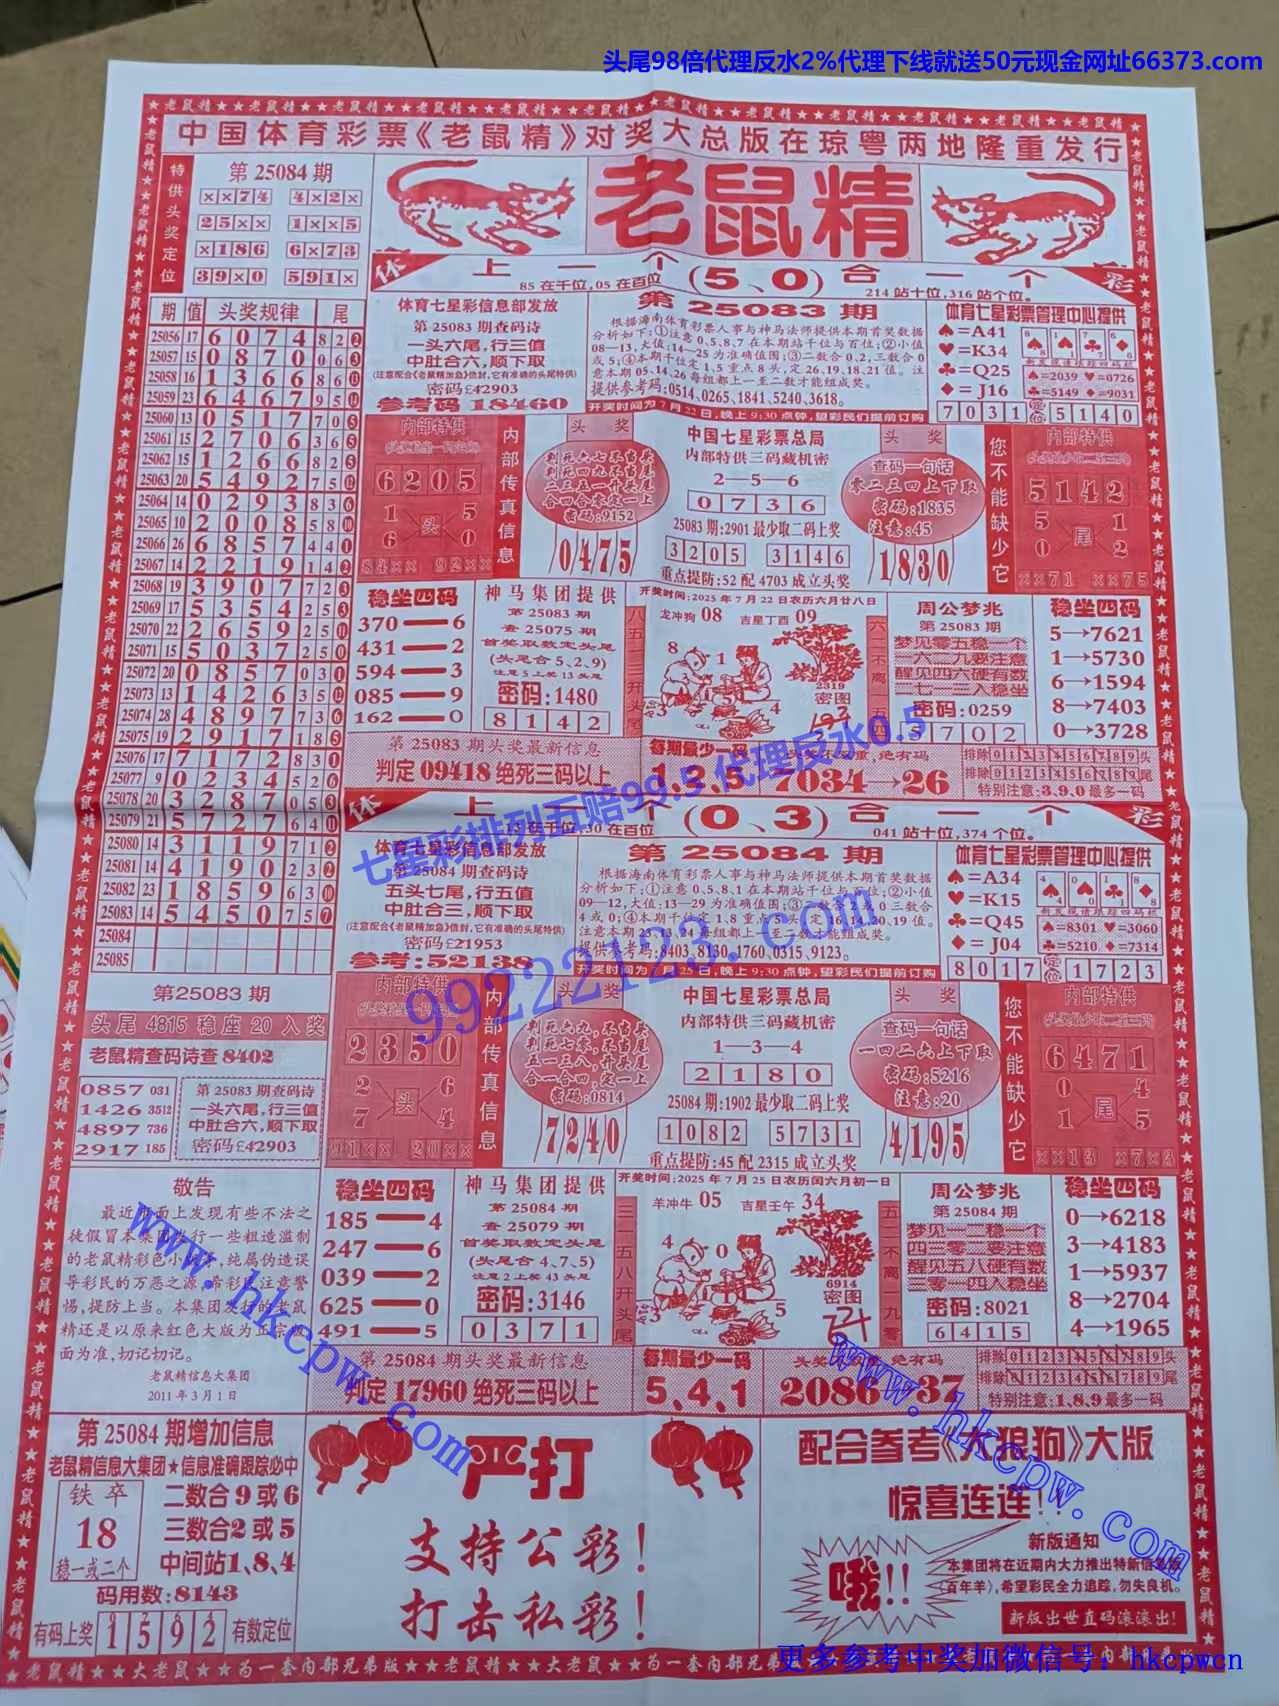 头尾98倍代理反水2%代理下线就送50元现金网址66373.com
中国体育彩票《老鼠精》对奖大总版在琼粤两地隆重发行
特供头奖定位
第 25084 期
××74 4×2×
25×× 1××5
×186 6×73
39×0 591×
老鼠精
体 上一个(5、0)合一个 彩
85 在千位,05 在百位
214 站十位,316 站个位。
期 值 头奖规律 尾
25056 17 6074 82
25057 15 0870 06
25058 16 1366 86
25059 23 6467 95
25060 13 0517 70
25061 15 2706 36
25062 15 1266 82
25063 20 5492 75
25064 14 0293 83
25065 10 2008 58
25066 26 6857 44
25067 14 2219 14
25068 19 3907 72
25069 17 5354 25
25070 22 2659 25
25071 15 5037 25
25072 20 0857 03
25073 13 1426 35
25074 28 4897 73
25075 19 2917 18
25076 17 7172 83
25077 9 0234 52
25078 20 3287 05
25079 21 5727 64
25080 14 3119 71
25081 14 4190 23
25082 23 1859 63
25083 14 5450 75
25084
25085
体育七星彩信息部发放
第 25083 期查码诗
一头六尾,行三值
中肚合六,顺下取
(注意配合《老鼠精加急》信封,它有准确的头尾特供)
密码£42903
参考码 18460
第 25083 期
根据海南体育彩票人事与神马法师提供本期首奖数据
分析如下:①注意 0、5、8、7 在本期站千位与百位;②小值
08—13,大值:14—25 为准确值围;③二数合 0、2,三数合 0
或 5;④本期千位定 1、5 重点 8 头,定 26、19、18、21 值。注
意本期 05、14、26 每组都上一至二数才能组成奖。
提供参考码:0514、0265、1841、5240、3618。
开奖时间为 7 月 22 日,晚上 9:30 点钟,望彩民们提前订购
体育七星彩票管理中心提供
♠=A41
♥=K34
♣=Q25
♦=J16
♠=2039 ♥=0726
♣=5149 ♦=9031
7031 定位 5140
内部特供
6205
1 5
头
6 0
84×× 92××
内部传真信息
头奖
判死六七不当头
判死四九不当尾
二三五一升头尾
合四合零定一上
密码:9152
0475
中国七星彩票总局
内部特供三码藏机密
2—5—6
0736
25083 期:2901 最少取二码上奖
3205 3146
重点提防:52 配 4703 成立头奖
头奖
查码一句话
零二三四上下取
密码:1835
注意:45
1830
您不能缺少它
内部特供
5142
5 1
尾
0 2
××71 ××75
稳坐四码
370—6
431—2
594—3
085—9
162—0
神马集团提供
第 25083 期
查 25075 期
首奖取数定头尾
(头尾合 5、2、9)
注意 5 上奖 13 头尾
密码:1480
8142
开奖时间:2025 年 7 月 22 日农历六月廿八日
八五一三开头尾
龙冲狗 08 吉星丁酉 09
8 1
3 4
2319
密图
周公梦兆
第 25083 期
梦见零五稳一个
一六一九要注意
醒见四六硬有数
二七一三入稳坐
密码:0259
3702
稳坐四码
5→7621
1→5730
6→1594
8→7403
0→3728
第 25083 期头奖最新信息
判定 09418 绝死三码以上
每期最少一码
1、2、5
7034→26
排除 0123456789 头
排除 0123456789 尾
特别注意:3、9、0 最多一码
七星彩排列五赔99.5 代理反水0.5
99222123.com
体 上一个(0、3)合一个 彩
13 在千位,30 在百位
041 站十位,374 站个位。
体育七星彩信息部发放
第 25084 期查码诗
五头七尾,行五值
中肚合三,顺下取
(注意配合《老鼠精加急》信封,它有准确的头尾特供)
密码£21953
参考:52138
第 25084 期
根据海南体育彩票人事与神马法师提供本期首奖数据
分析如下:①注意 0、5、8、1 在本期站千位与百位;②小值
09—12,大值:13—29 为准确值围;③二数合 2 或 0 三数合
4 或 0;④本期千位定 1、8 重点 5 头,定 16、14、20、19 值。
注意本期 23、13、24 每组都上一至二数才能组成奖。
提供参考码:8403、8130、1760、0315、9123。
开奖时间为 7 月 25 日,晚上 9:30 点钟,望彩民们提前订购
体育七星彩票管理中心提供
♠=A34
♥=K15
♣=Q45
♦=J04
♠=8301 ♥=3060
♣=5210 ♦=7314
8017 定位 1723
第25083 期
头尾 4815 稳座 20 入奖
老鼠精查码诗查 8402
0857 031
1426 3512
4897 736
2917 185
第 25083 期查码诗
一头六尾,行三值
中肚合六,顺下取
密码£42903
内部特供
2350
2 6
头
7 4
21×× 20××
内部传真信息
头奖
判死六九,不当头
判死七零,不当尾
五一三八,升头尾
合一合四,定一上
密码:0814
7240
中国七星彩票总局
内部特供三码藏机密
1—3—4
2180
25084 期:1902 最少取二码上奖
1082 5731
重点提防:45 配 2315 成立头奖
头奖
查码一句话
一四二六上下取
密码:5216
注意:20
4195
您不能缺少它
内部特供
6471
0 4
尾
1 5
××13 ×7×3
敬告
最近市面上发现有些不法之
徒假冒本集团发行一些粗造滥制
的老鼠精彩色小版本,纯属伪造误
导彩民的万恶之源,希彩民注意警
惕,提防上当。本集团发行的老鼠
精还是以原来红色大版为正宗版
面为准,切记切记。
老鼠精信息大集团
2011 年 3 月 1 日
稳坐四码
185—4
247—6
039—2
625—0
491—5
神马集团提供
第 25084 期
查 25079 期
首奖取数定头尾
(头尾合 4、7、5)
注意 2 上奖 43 头尾
密码:3146
0371
开奖时间:2025 年 7 月 25 日农历闰六月初一日
三一五八开头尾
羊冲牛 05 吉星壬午 34
4 0
3 5
6914
密图
五二不离一九零
周公梦兆
第 25084 期
梦见一二稳一个
四三零一要注意
醒见五八硬有数
三零一四入稳坐
密码:8021
6415
稳坐四码
0→6218
3→4183
1→5937
8→2704
4→1965
第 25084 期头奖最新信息
判定 17960 绝死三码以上
每期最少一码
5、4、1
2086→37
排除 0123456789 头
排除 0123456789 尾
特别注意:1、8、9 最多一码
www.hkcpw.com
www.hkcpw.com
第 25084 期增加信息
老鼠精信息大集团★信息准确跟踪必中
铁卒
18
稳一或二个
二数合 9 或 6
三数合 2 或 5
中间站1、8、4
码用数:8143
有码上奖 1592 有数定位
严打
支持公彩!
打击私彩!
配合参考《大狼狗》大版
惊喜连连!!
哦!!
新版通知
本集团将在近期内大力推出特新信息版
《百年羊》,希望彩民全力追踪,勿失良机。
新版出世直码滚滚出!
★老鼠精★★大老鼠★★为一套内部兄弟版★★老鼠精★★大老鼠★★为一套内部兄弟版
更多参考中奖加微信号: hkcpwcn